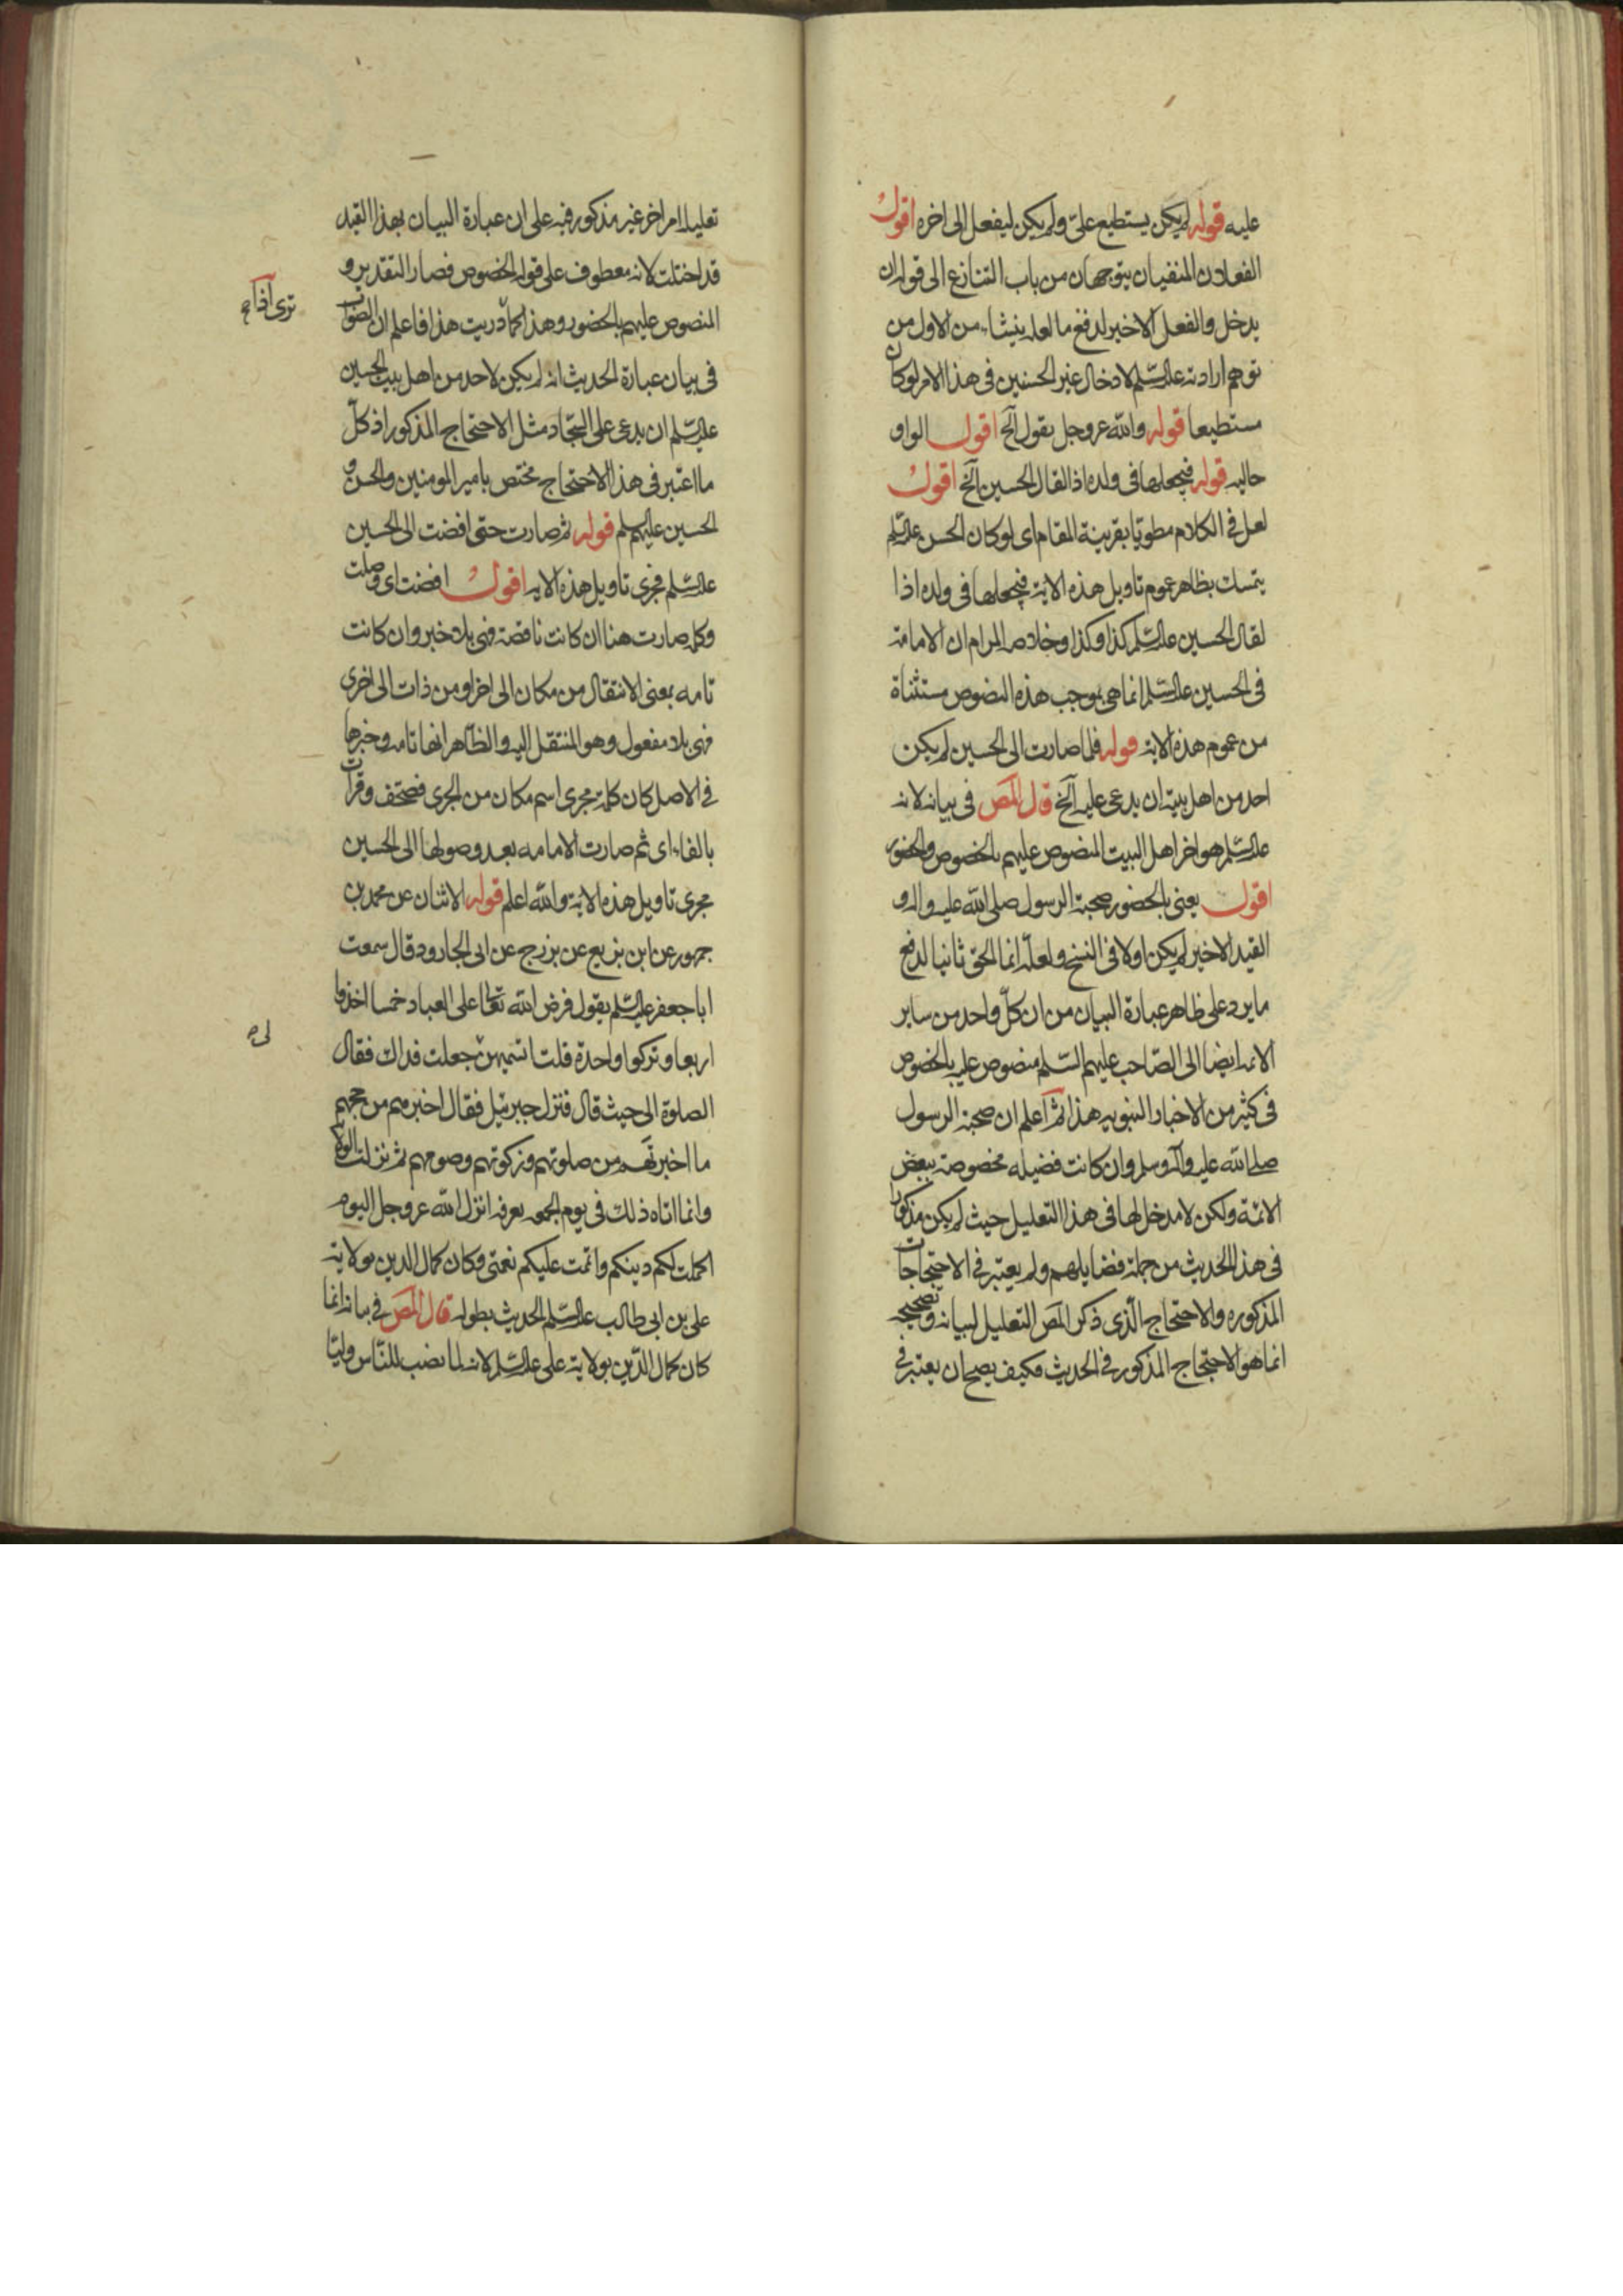 عليه قوله لم يكن يستطيع علىّ ولم يكن ليفعل الى اخره اقول
الفعلان المنفيان يتوجهان من باب التنازع الى قوله ان
يدخل والفعل الاخير لدفع ما لعله ينشاء من الاول من
توهم ارادته عليه السّلم لادخال غير الحسنين فى هذا الامر لو كان
مستطيعا قوله والله عز وجل يقول آلخ اقول الواو
حاليه قوله فيجعلها فى ولده اذا لقال الحسين آلخ اقول
لعل فى الكلام مطويّا بقرينة المقام اى لو كان الحسن عليه السّلم
يتمسك بظاهر عموم تاويل هذه الاية فيجعلها فى ولده اذا
لقال الحسين عليه السّلم كذا وكذا وخلاصه المرام ان الامامة
فى الحسين عليه السّلم انما هى بموجب هذه النصوص مستثناة
من عموم هذه الاية قوله فلما صارت الى الحسين لم يكن
احد من اهل بيته ان يدعى عليه آلخ قال المص فى بيانه لانه
عليه السّلم هو اخر اهل البيت المنصوص عليهم بالخصوص والحضور
اقول يعنى بالحضور صحبة الرسول صلى الله عليه واله و
القيد الاخير لم يكن اولا فى النسخ ولعلّه انما الحق ثانيا لدفع
ما يرد على ظاهر عبارة البيان من ان كلّ واحد من ساير
الائمه ايضا الى الصّاحب عليهم السّلم منصوص عليه بالخصوص
فى كثير من الاخبار النبويه هذا ثم اعلم ان صحبة الرسول
صلى الله عليه وآله وسلم وان كانت فضيله مخصوصة ببعض
الائمّة ولكن لا مدخل لها فى هذا التعليل حيث لم يكن مذكورا
فى هذا الحديث من جملة فضايلهم ولم يعتبر فى الاحتجاجات
المذكوره والاحتجاج الّذى ذكر المص التعليل لبيانه وتصحيحه
انما هو الاحتجاج المذكور فى الحديث فكيف يصح ان يعتبر فى
تعليله امر اخر غير مذكور فيه على ان عبارة البيان بهذا القيد
قد اختلت لانه معطوف على قوله الخصوص فصار التقدير و
المنصوص عليهم بالحضور وهذا كما دريت هذا فاعلم ان الصّواب
فى بيان عبارة الحديث انه لم يكن لاحد من اهل بيت الحسين
عليه السّلم ان يدعى على السّجّاد مثل الاحتجاج المذكور اذ كلّ
ما اعتبر فى هذا الاحتجاج مختص بامير المومنين والحسن و
الحسين عليهم السلم قوله ثم صارت حتى افضت الى الحسين
عليه السّلم فجرى تاويل هذه الايه اقول افضت اى وصلت
وكلمه صارت هنا ان كانت ناقصة فهى بلا خبر وان كانت
تامه بمعنى الانتقال من مكان الى اخر او من ذات الى اخرى
فهى بلا مفعول وهو المنتقل اليه والظّاهر انها تامه وخبرها
فى الاصل كان كلمة مجرى اسم مكان من الجرى فصحّف وقرات
بالفاء اى ثم صارت الامامه بعد وصولها الى الحسين
مجرى تاويل هذه الاية والله اعلم قوله الاثنان عن محمد بن
جمهور عن ابن بزيع عن بزرج عن ابى الجارود قال سمعت
ابا جعفر عليه السّلم يقول فرض الله تعالى على العباد خمسا اخذوا
اربعا وتركوا واحدة قلت اتسمّيهن جعلت فداك فقال
الصلوة الى حيث قال فنزل جبرئيل فقال اخبرهم من حجهم
ما اخبرتهم من صلوتهم وزكوتهم وصومهم ثم نزلت الولاية
وانما اتاه ذلك فى يوم الجمعه بعرفه انزل الله عز وجل اليوم
اكملت لكم دينكم واتممت عليكم نعمتى وكان كمال الدين بولاية
على بن ابى طالب عليه السّلم الحديث بطوله قال المص فى بيانه انما
كان كمال الدّين بولاية على عليه السّلم لانه لما نصب للنّاس وليّا